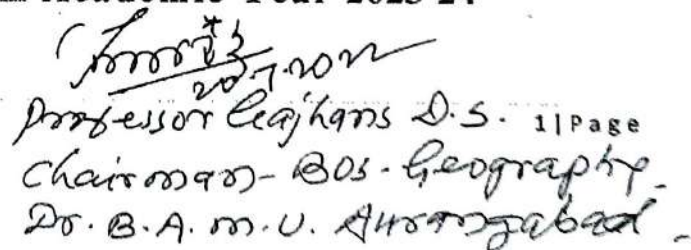 Academic Year 2023-24
20.7.2022
Professor Gajhans D.S. 1|Page
Chairman - BOS - Geography.
Dr. B. A. M. U. Aurangabad.